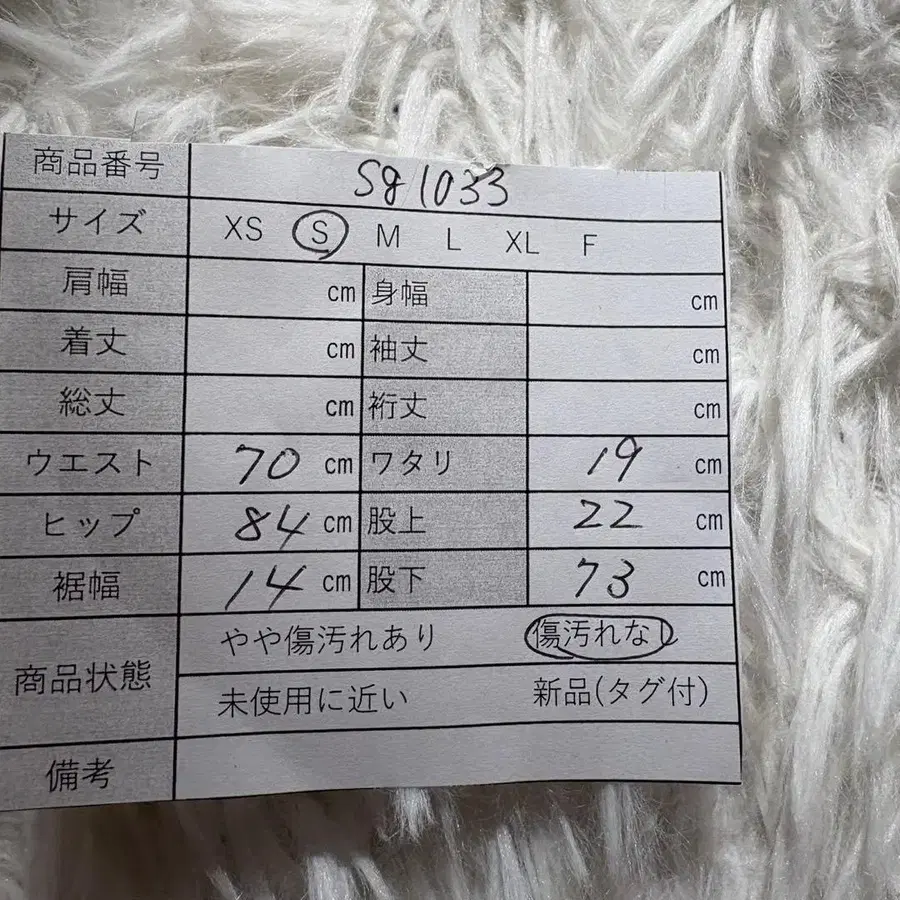 商品番号 Sg1033
サイズ XS S M L XL F
肩幅 cm 身幅 cm
着丈 cm 袖丈 cm
総丈 cm 裄丈 cm
ウエスト 70 cm ワタリ 19 cm
ヒップ 84 cm 股上 22 cm
裾幅 14 cm 股下 73 cm
商品状態 やや傷汚れあり 傷汚れなし
未使用に近い 新品(タグ付)
備考